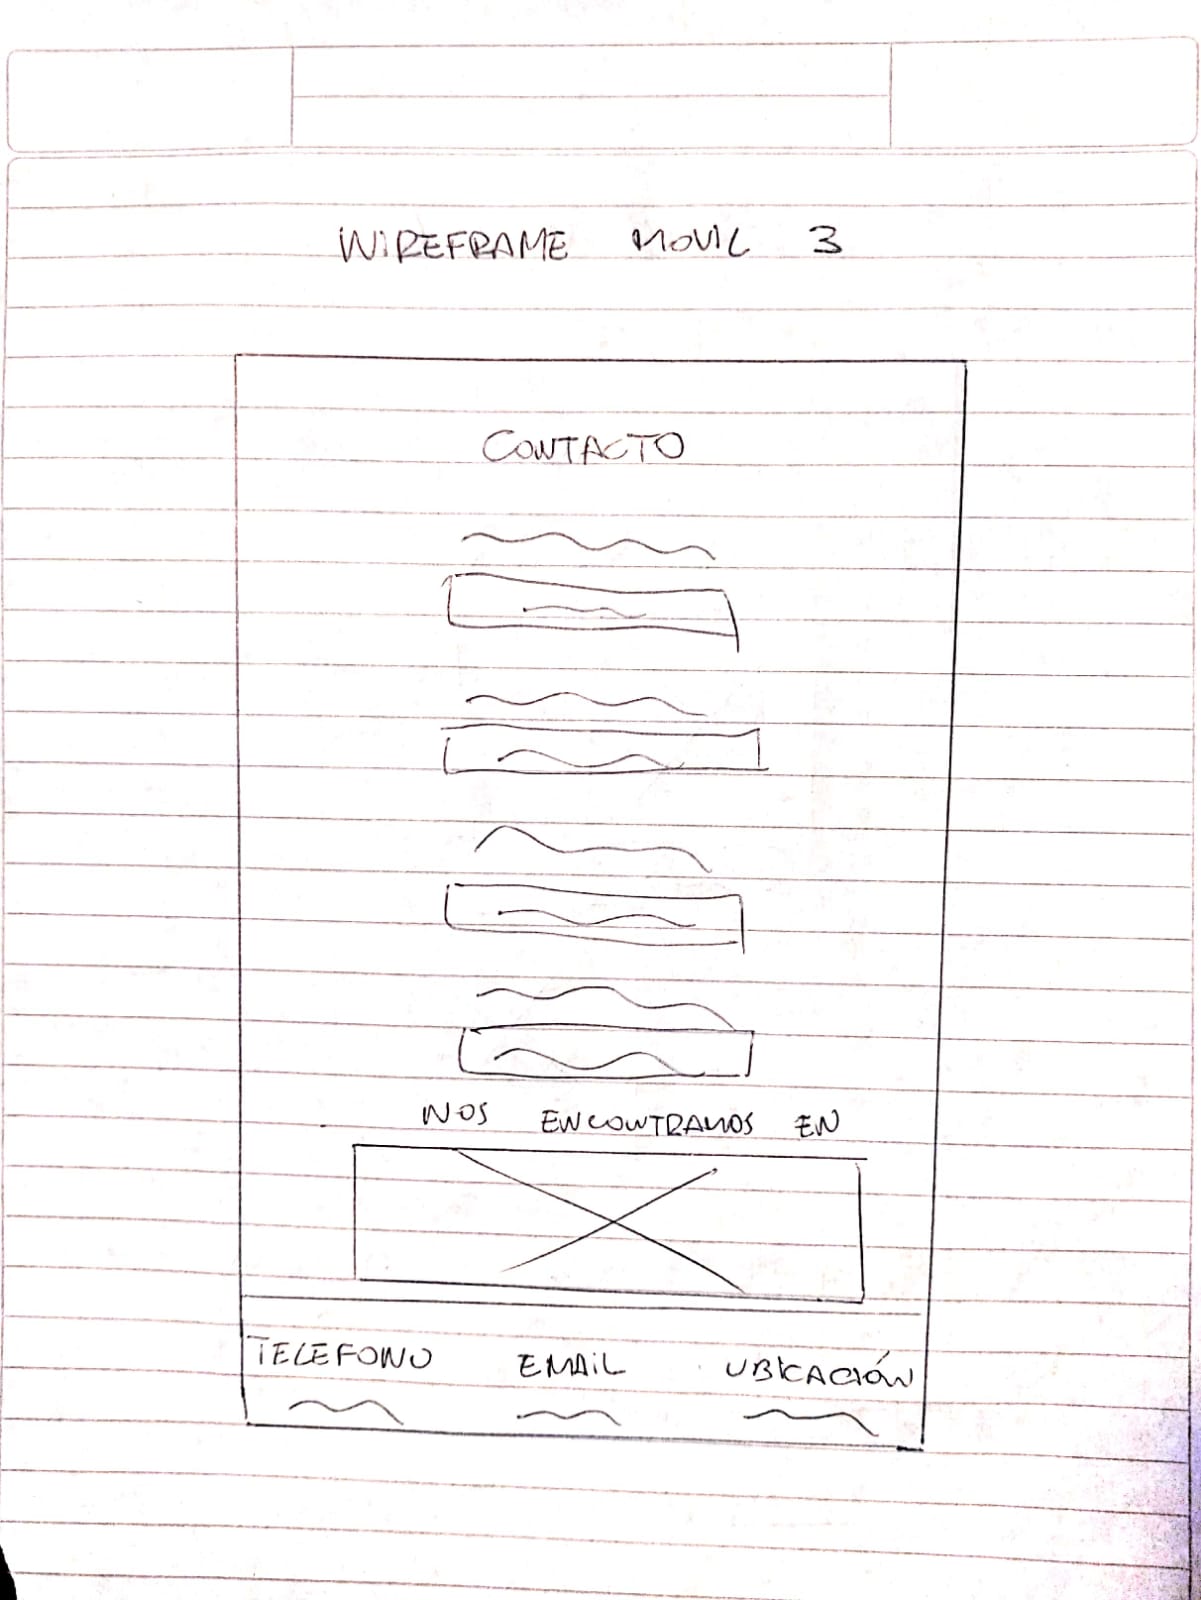 WIREFRAME MOVIL 3
CONTACTO
NOS ENCONTRAMOS EN
TELEFONO EMAIL UBICACIÓN